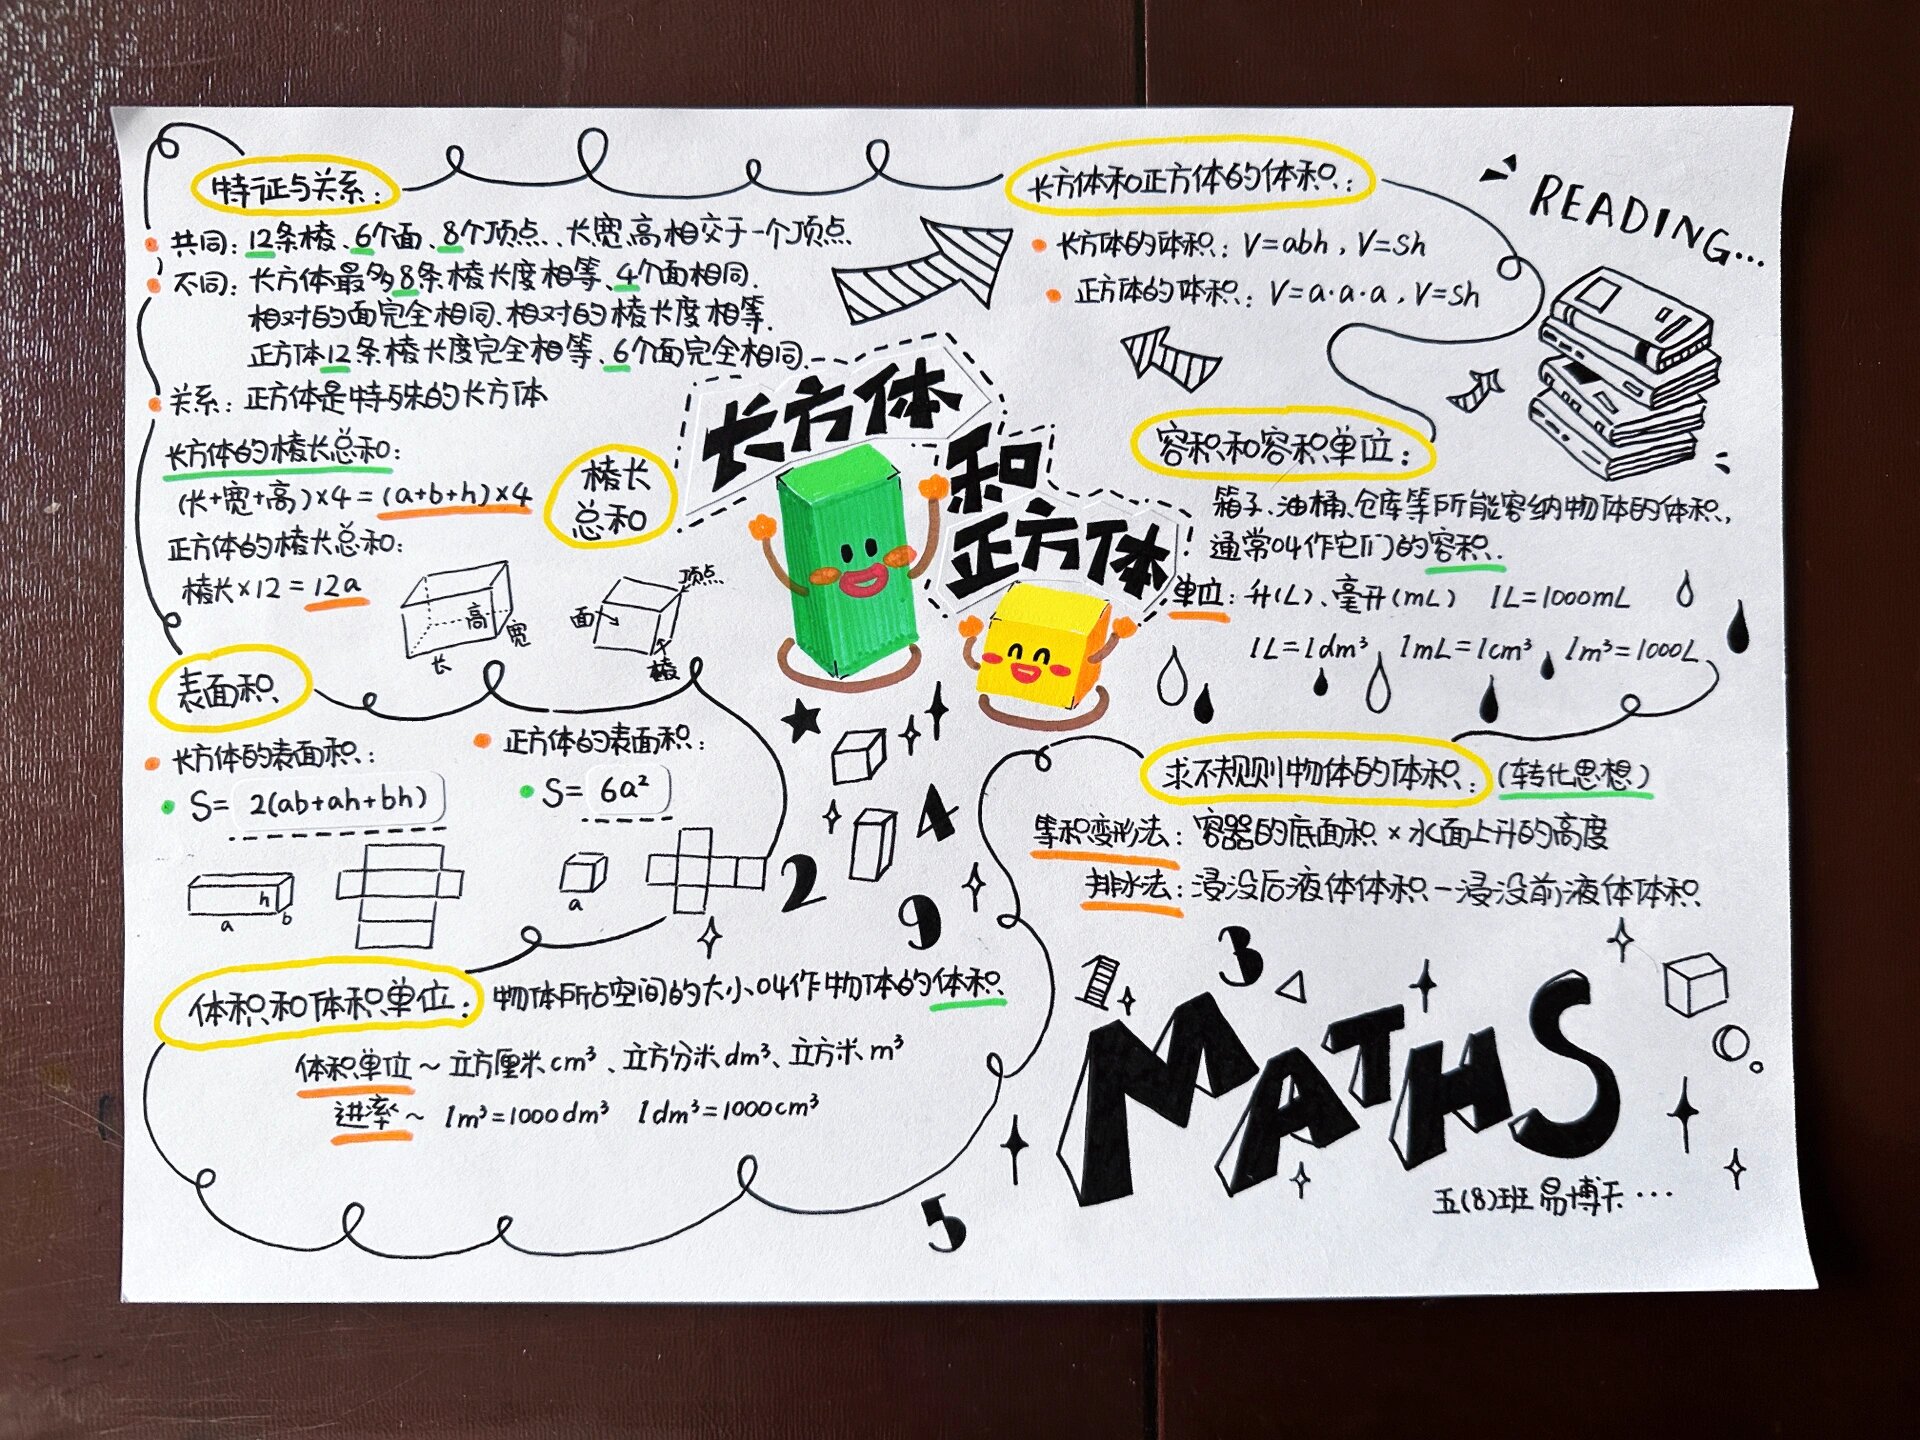 特证与关系：
共同：12条棱、6个面、8个顶点、长宽高相交于一个顶点
不同：长方体最多8条棱长度相等、4个面相同.
相对的面完全相同.相对的棱长度相等.
正方体12条棱长度完全相等、6个面完全相同.
关系：正方体是特殊的长方体
棱长
总和
长方体的棱长总和：
(长+宽+高)×4=(a+b+h)×4
正方体的棱长总和：
棱长×12=12a
高
宽
长
顶点
面
棱
表面积
长方体的表面积：
S= 2(ab+ah+bh)
h
a
b
正方体的表面积：
S= 6a²
a
体积和体积单位：
物体所占空间的大小叫作物体的体积
体积单位~立方厘米cm³、立方分米dm³、立方米m³
进率~ 1m³=1000dm³ 1dm³=1000cm³
长方体
和
正方体
长方体和正方体的体积：
长方体的体积：V=abh，V=Sh
正方体的体积：V=a·a·a，V=Sh
READING...
容积和容积单位：
箱子、油桶、仓库等所能容纳物体的体积，
通常叫作它们的容积.
单位：升(L)、毫升(mL) 1L=1000mL
1L=1dm³ 1mL=1cm³ 1m³=1000L
求不规则物体的体积：(转化思想)
等积变形法：容器的底面积×水面上升的高度
排水法：浸没后液体体积-浸没前液体体积
2
4
9
1
3
5
MATHS
五(8)班 易博天...